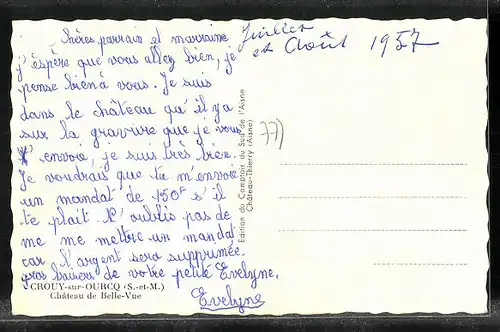 Chères parrain et marraine
j'éspère que vous allez bien, je
pense bien à vous. Je suis
dans le château qu'il ya
sur la gravure que je vous
envoie, je suis très bien.
Je voudrais que tu m'envoie
un mandat de 150F s'il
te plait. N'oublis pas de
me me mettre un mandat
car l'argent sera supprimée.
gros baisers de votre petite Evelyne.
Evelyne
CROUY-sur-OURCQ (S.-et-M.)
Château de Belle-Vue
Edition du Comptoir du Sud de l'Aisne
Château-Thierry (Aisne)
Juillet
et Août 1957
77)